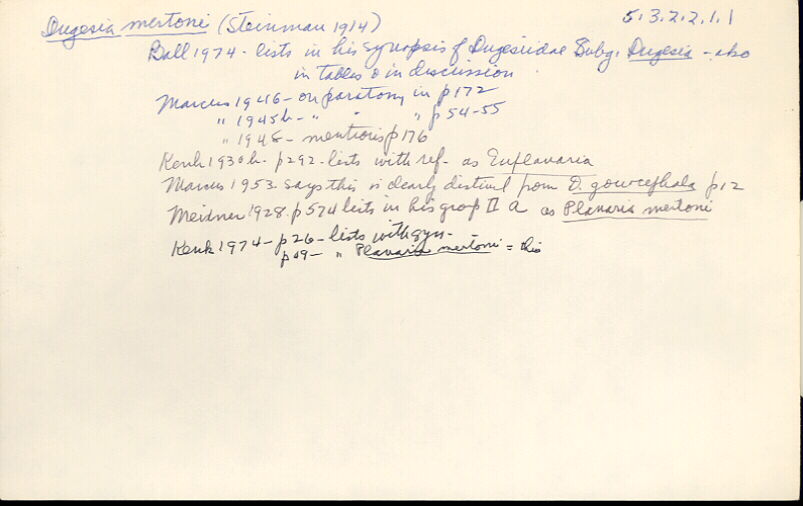 Dugesia mertoni (Steinman 1914) 5.3.2.2.1.1
Ball 1974 - lists in his synopsis of Dugesiidae Subg. Dugesia - also
in tables & in discussion
Marcus 1946 - on paratomy in p 172
" 1945b - " " " p 54-55
" 1948 - mentions p 176
Kenk 1930b - p 292 - lists with ref - as Euplanaria
Marcus 1953 says this is clearly distinct from D. gonocephala p 12
Meixner 1928. p 574 lists in his group II a as Planaria mertoni
Kenk 1974 - p 26 - lists with syn -
p 19 - " Planaria mertoni = this